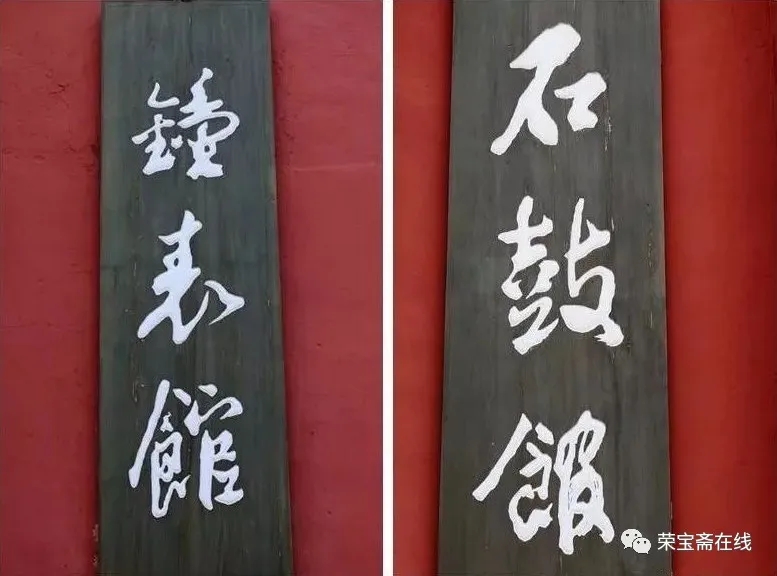 鐘表館
石鼓館
荣宝斋在线